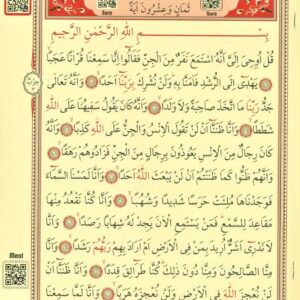 Sure
Sure
ثَمَانٍ وَعِشْرُونَ آيَةً
بِسْمِ اللَّهِ الرَّحْمٰنِ الرَّحِيمِ
قُلْ أُوحِيَ إِلَيَّ أَنَّهُ اسْتَمَعَ نَفَرٌ مِنَ الْجِنِّ فَقَالُوا إِنَّا سَمِعْنَا قُرْآنًا عَجَبًا
يَهْدِي إِلَى الرُّشْدِ فَآمَنَّا بِهِ وَلَنْ نُشْرِكَ بِرَبِّنَا أَحَدًا وَأَنَّهُ تَعَالَى
جَدُّ رَبِّنَا مَا اتَّخَذَ صَاحِبَةً وَلَا وَلَدًا وَأَنَّهُ كَانَ يَقُولُ سَفِيهُنَا عَلَى اللَّهِ
شَطَطًا وَأَنَّا ظَنَنَّا أَنْ لَنْ تَقُولَ الْإِنْسُ وَالْجِنُّ عَلَى اللَّهِ كَذِبًا وَأَنَّهُ
كَانَ رِجَالٌ مِنَ الْإِنْسِ يَعُوذُونَ بِرِجَالٍ مِنَ الْجِنِّ فَزَادُوهُمْ رَهَقًا
وَأَنَّهُمْ ظَنُّوا كَمَا ظَنَنْتُمْ أَنْ لَنْ يَبْعَثَ اللَّهُ أَحَدًا وَأَنَّا لَمَسْنَا السَّمَاءَ
فَوَجَدْنَاهَا مُلِئَتْ حَرَسًا شَدِيدًا وَشُهُبًا وَأَنَّا كُنَّا نَقْعُدُ مِنْهَا
مَقَاعِدَ لِلسَّمْعِ فَمَنْ يَسْتَمِعِ الْآنَ يَجِدْ لَهُ شِهَابًا رَصَدًا وَأَنَّا
لَا نَدْرِي أَشَرٌّ أُرِيدَ بِمَنْ فِي الْأَرْضِ أَمْ أَرَادَ بِهِمْ رَبُّهُمْ رَشَدًا وَأَنَّا
Meal
مِنَّا الصَّالِحُونَ وَمِنَّا دُونَ ذٰلِكَ كُنَّا طَرَائِقَ قِدَدًا وَأَنَّا ظَنَنَّا أَنْ
لَنْ نُعْجِزَ اللَّهَ فِي الْأَرْضِ وَلَنْ نُعْجِزَهُ هَرَبًا وَأَنَّا لَمَّا سَمِعْنَا